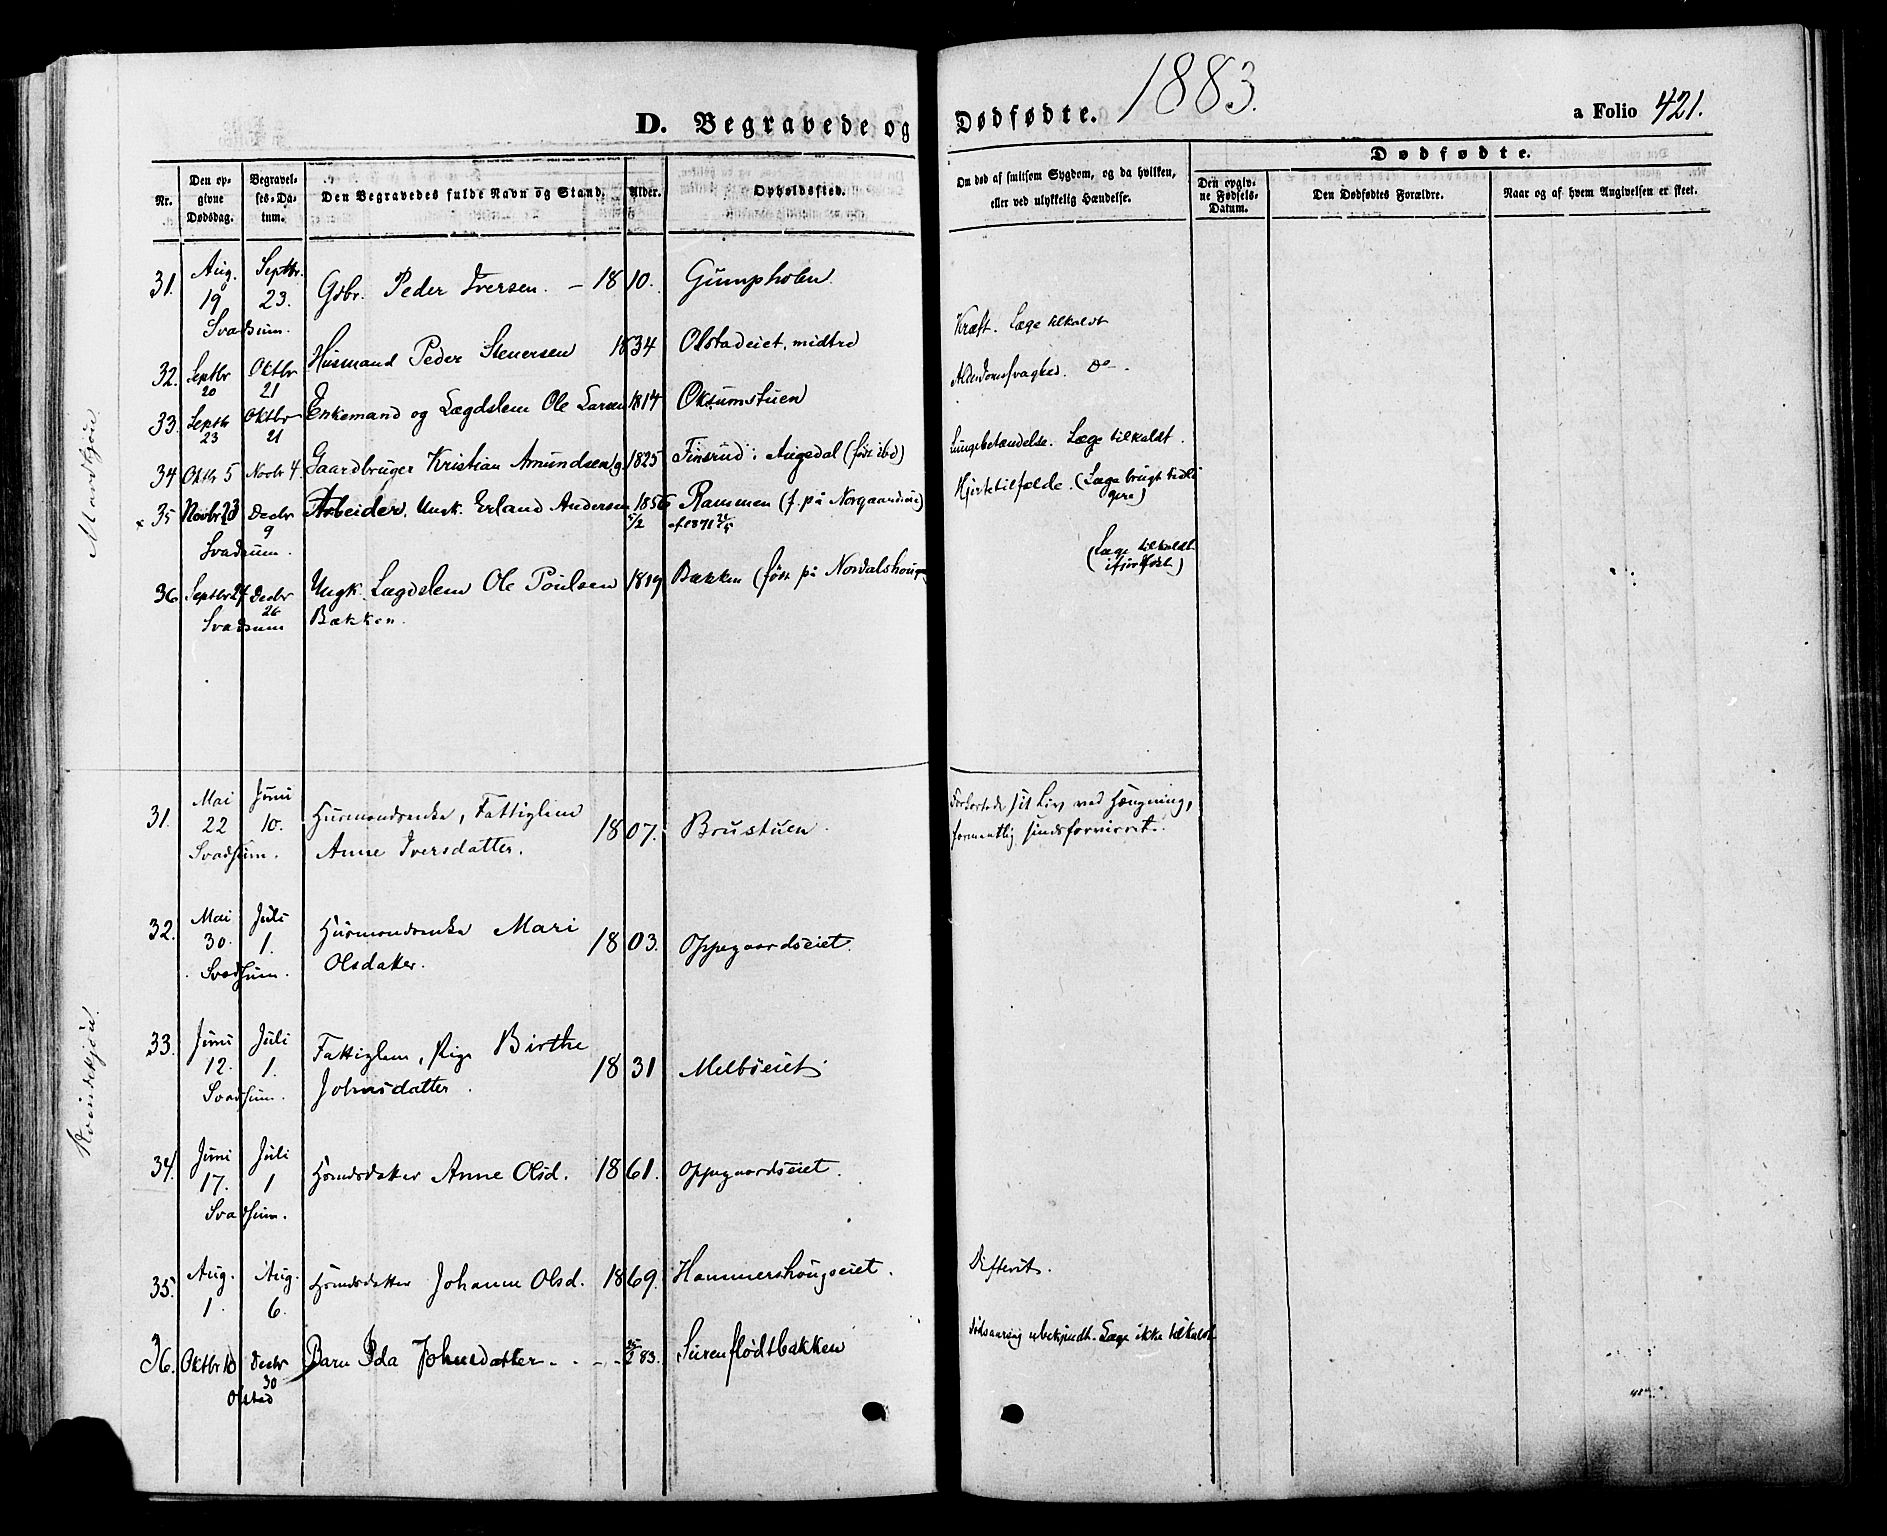 1883.
D. Begravede og Dødfødte.
a Folio 421.
Nr.
Den opgivne Dødsdag.
Begravelses-Datum.
Den Begravedes fulde Navn og Stand.
Alder.
Opholdssted.
Om død af smitsom Sygdom, og da hvilken,
eller ved ulykkelig Hændelse.
Dødfødte.
Den opgivne Fødsels-Datum.
Den Dødfødtes Forældre.
Naar og af hvem Angivelsen er skeet.
Mandkjøn.
31. Aug. 19 Septbr. 23. Gbr. Peder Iversen. – 1810. Gumpholen
Svadsum.
32. Septbr 20 Oktbr 21 Husmand Peder Stenersen 1834 Olstadeiet, midtre Kræft. Læge tilkaldt
33. Septbr 23 Oktbr 21 Enkemand og Lægdslem Ole Larsen 1814 Oksumstuen Alderdomssvaghed. Do.
34 Oktbr 5 Novbr 4. Gaardbruger Kristian Amundsen 1825 Finsrud i Augedal (født ibd) Lungebetændelse. Læge tilkaldt.
x 35 Novbr 23 Decbr 9 Arbeider. Ungk. Erland Andersen 1856 5/2 Rammen (f. på Norgaardseie) Hjertetilfælde. (Læge brugt tidligere)
Svadsum.
36. Septbr 24 Decbr 26 Ungk. Lægdslem Ole Poulsen 1819 Bækken (født på Nordalshaugen) (Læge tilkaldt ifjor Høst)
Svadsum Bækken.
Kvindekjøn.
31. Mai 22 Juni 10. Husmandsenke, Fattiglem 1807. Brustuen. Forkortede sit Liv ved Hængning,
Svadsum. Anne Iversdatter. formentlig sindsforvirret.
32. Mai 30. Juli 1. Husmandsenke Mari 1803. Oppegaardseiet.
Svadsum. Olsdatter.
33. Juni 12. Juli 1. Fattiglem, Pige Birthe 1831 Melbøeiet
Svadsum. Johnsdatter.
34. Juni 17. Juli 1 Hsmdsdatter Anne Olsd. 1861. Oppegaardseiet.
Svadsum.
35. Aug. 1. Aug. 6. Hsmdsdatter Johanne Olsd. 1869. Hammershougseiet. Difterit.
36. Oktbr 10 Decbr 30 Barn Ida Johnsdatter . . – – 83. Dødsaarsag ubekjendt. Læge ikke tilkaldt
Olstad